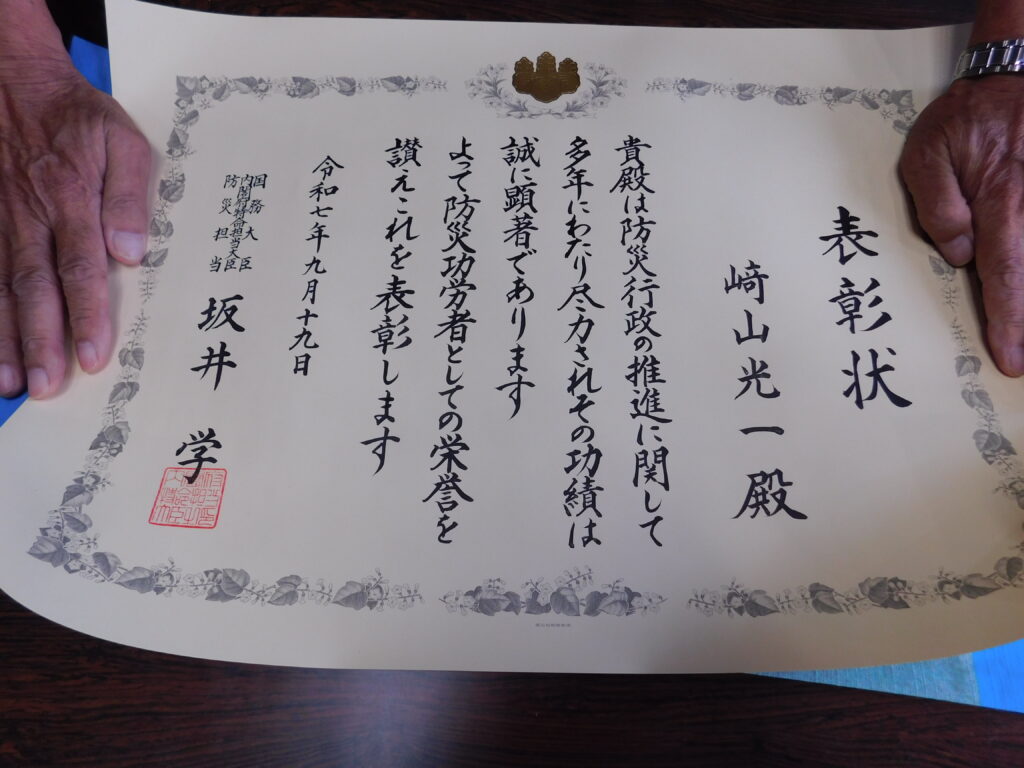 表彰状
﨑山光一殿
貴殿は防災行政の推進に関して
多年にわたり尽力されその功績は
誠に顕著であります
よって防災功労者としての栄誉を
讃えこれを表彰します
令和七年九月十九日
国務大臣
内閣府特命担当大臣
防災担当
坂井学